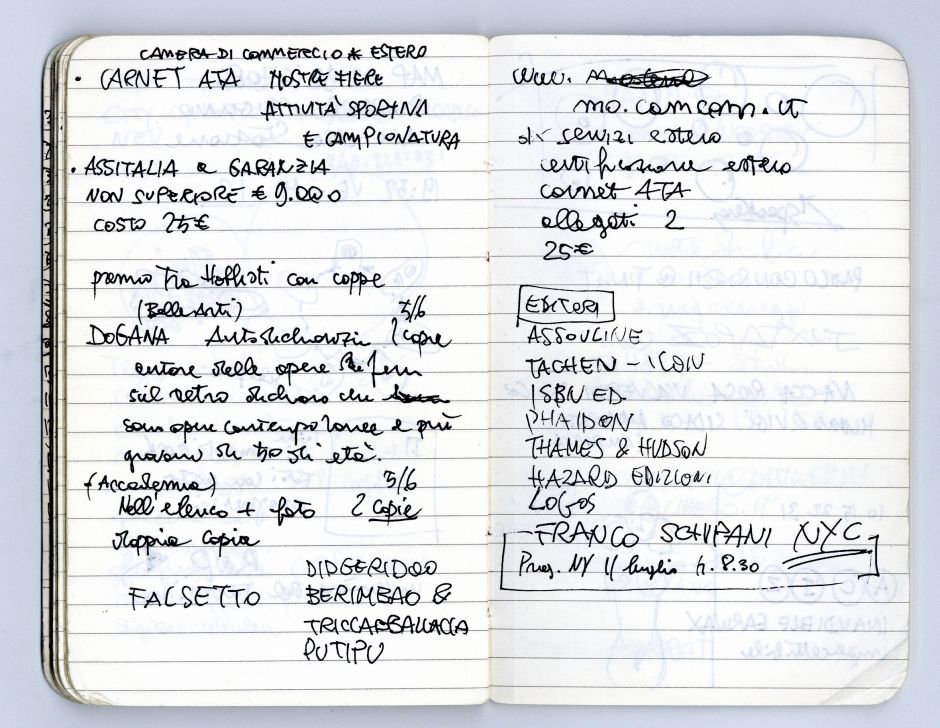 CAMERA DI COMMERCIO * ESTERO
• CARNET ATA MOSTRE FIERE
ATTIVITÀ SPORTIVA
E CAMPIONATURA
• ASSITALIA GARANZIA
NON SUPERIORE € 9.000
COSTO 25€
premio Tra con coppe
(Belle Arti) 5/6
DOGANA copie
autore delle opere
sul retro dichiaro che
sono opere contemporanee e più
giovani di 50 di età.
(Accademia) 5/6
Nell'elenco + foto 2 Copie
doppia copia
DIDGERIDOO
FALSETTO BERIMBAO &
TRICCABALLACCA
PUTIPU
www.
mo.camcom.it
servizi estero
certificazione estero
carnet ATA
allegati 2
25€
EDITORI
ASSOULINE
TACHEN - ICON
ISBN ED.
PHAIDON
THAMES & HUDSON
HAZARD EDIZIONI
LOGOS
FRANCO SCHIPANI NYC
NY 11 luglio h. 8.30